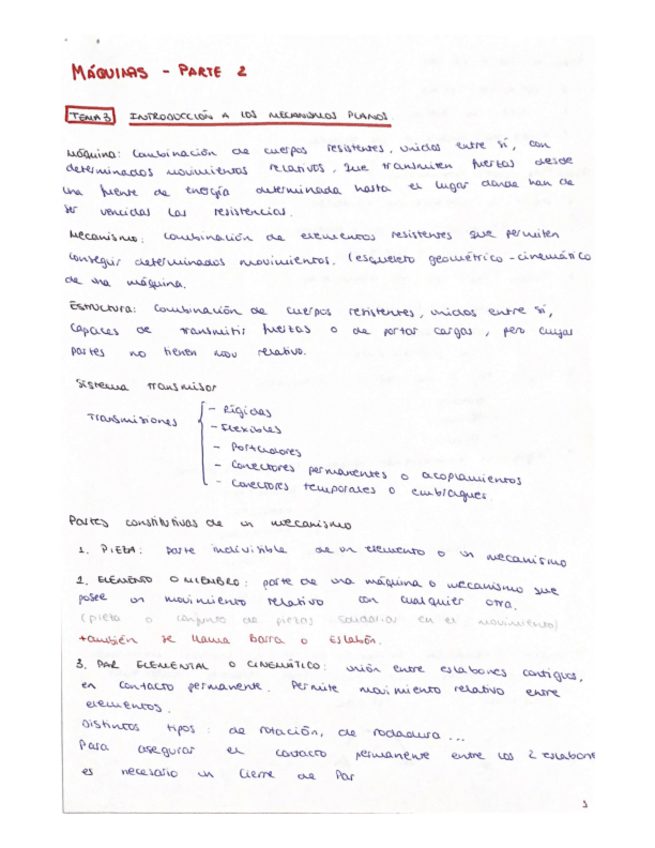 MÁQUINAS - PARTE 2
TEMA 3 INTRODUCCIÓN A LOS MECANISMOS PLANOS.
Máquina: Combinación de cuerpos resistentes, unidos entre sí, con
determinados movimientos relativos, que transmiten fuerzas desde
una fuente de energía determinada hasta el lugar donde han de
ser vencidas las resistencias.
Mecanismo: combinación de elementos resistentes que permiten
conseguir determinados movimientos. (esqueleto geométrico-cinemático
de una máquina.
Estructura: Combinación de cuerpos resistentes, unidos entre sí,
capaces de transmitir fuerzas o de portar cargas, pero cuyas
partes no tienen mov relativo.
Sistema transmisor
Transmisiones
- Rígidas
- Flexibles
- Portadores
- Conectores permanentes o acoplamientos
- Conectores temporales o embragues.
Partes constitutivas de un mecanismo
1. PIEZA: parte indivisible de un elemento o un mecanismo
2. ELEMENTO O MIEMBRO: parte de una máquina o mecanismo que
posee un movimiento relativo con cualquier otra.
(pieza o conjunto de piezas solidarias en el movimiento)
también se llama Barra o Eslabón.
3. PAR ELEMENTAL O CINEMÁTICO: unión entre eslabones contiguos,
en contacto permanente. Permite movimiento relativo entre
elementos.
Distintos tipos: de rotación, de rodadura...
Para asegurar el contacto permanente entre los 2 eslabone
es necesario un Cierre de Par
1